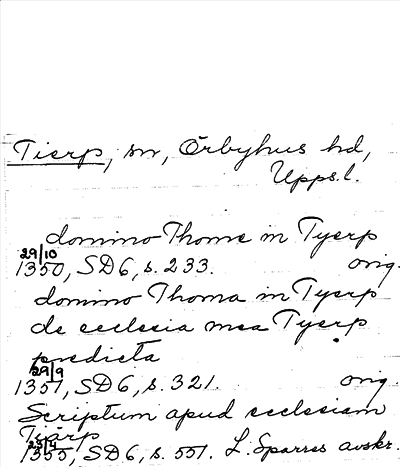 Tierp, sn, Örbyhus hd,
Upps.l.
domino Thome in Tyerp
29/10
1350, SD6, s. 233. orig.
domino Thoma in Tyerp
de ecclesia mea Tyerp
predicta
29/9
1351, SD6, s. 321. orig.
Scriptum apud ecclesiam
Tierp
1355, SD6, s. 551. L. Sparres avskr.